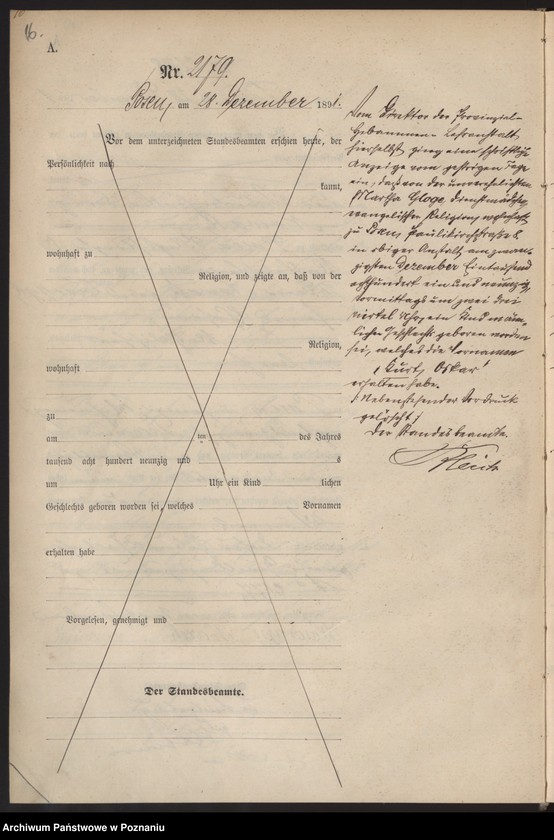 16.
A.
Nr. 2179.
Posen, am 28. Dezember 1891.
Vor dem unterzeichneten Standesbeamten erschien heute, der
Persönlichkeit nach
kannt,
wohnhaft zu
Religion, und zeigte an, daß von der
Religion,
wohnhaft
zu
am im des Jahres
tausend acht hundert neunzig und s
um Uhr ein Kind lichen
Geschlechts geboren worden sei, welches Vornamen
erhalten habe
Vorgelesen, genehmigt und
Der Standesbeamte.
Vom Direktor der Provinzial-
Hebammen-Lehranstalt
hierselbst ging eine schriftliche
Anzeige vom gestrigen Tage
ein, daß von der unverehelichten
Martha Gloge, Dienstmädchen,
evangelischer Religion, wohnhaft
zu Posen, Paulikirchstraße 8
in obiger Anstalt am zwan-
zigsten Dezember Eintausend
achthundert ein und neunzig,
Vormittags um zwei drei
viertel Uhr, ein Kind männ-
lichen Geschlechts geboren worden
sei, welches die Vornamen
"Kurt, Oskar"
erhalten habe.
Nebenstehender Vordruck
gelöscht;
Der Standesbeamte.
Archiwum Państwowe w Poznaniu